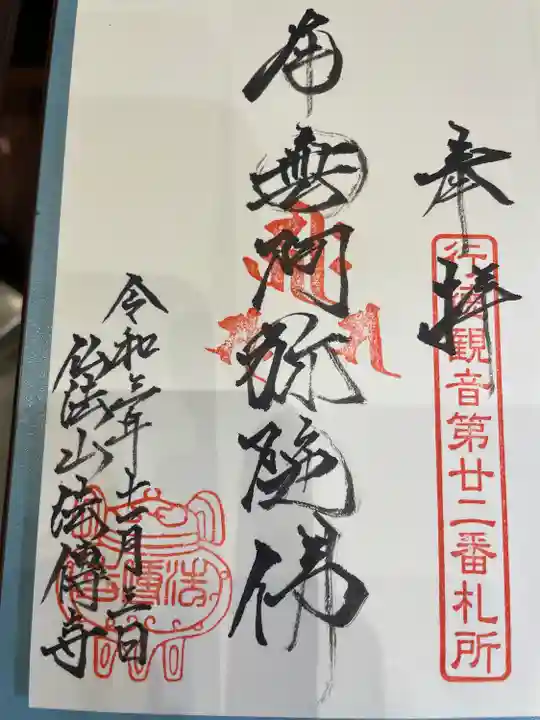 奉拝
行徳観音第廿二番札所
南無阿弥陀佛
令和六年十一月三日
仏法山法傳寺